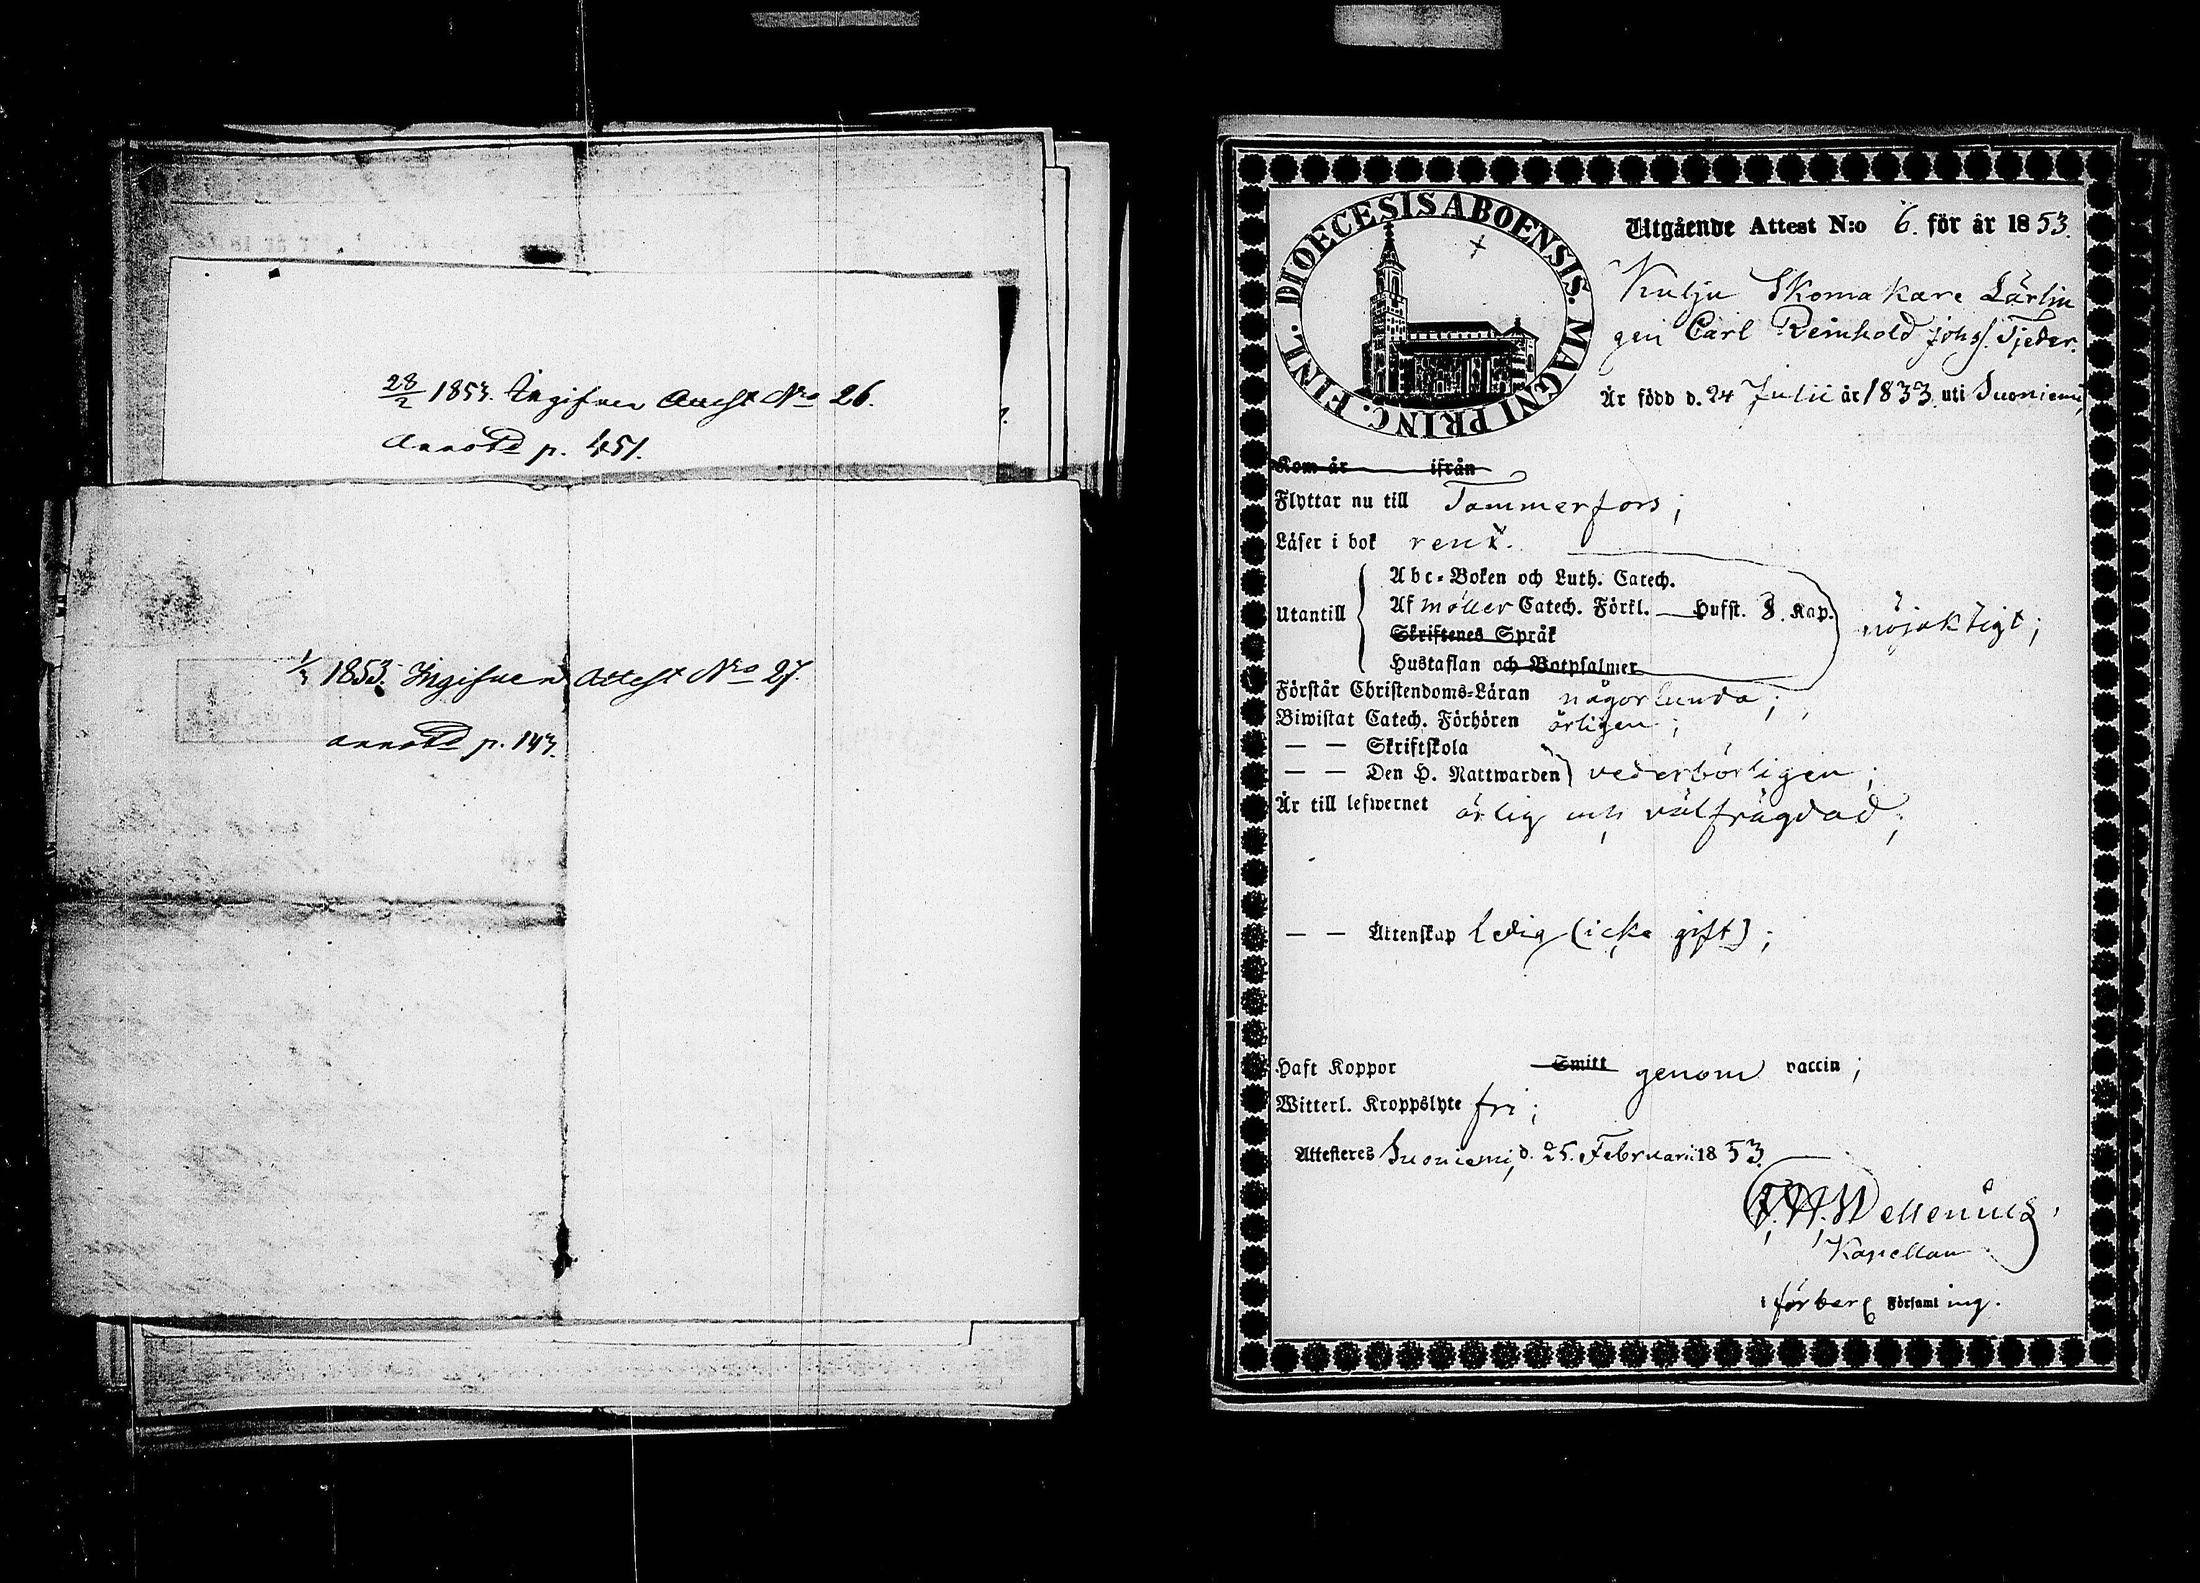 28/2 1853. Ingifven Attest No 26.
Annotd p. 451.
1/3 1853. Ingifven Attest No 27.
annotd p. 143.
DIOECESIS ABOENSIS. MAGNI PRINC. FINL.
Utgående Attest N:o 6. för år 1853.
Kulju Skomakare Lärlin
gen Carl Reinhold Johs. Tjeder.
Är född d. 24 Julii år 1833. uti Suoniemi,
Kom år ifrån
Flyttar nu till Tammerfors;
Läser i bok rent.
Abc-Boken och Luth. Catech.
Utantill Af Möller Catech. Förkl. Hufst. 8. Kap. nöjaktigt;
Skriftenes Språk
Hustaflan och Botpsalmer
Förstår Christendoms-Läran någorlunda;
Biwistat Catech. Förhören årligen;
— — Skriftskola
— — Den H. Nattwarden vederbörligen;
Är till lefwernet ärlig och välfrägdad;
— — Äktenskap ledig (icke gift);
Haft Koppor Smitt genom vaccin;
Witterl. Kroppslyte fri;
Attesteres Suoniemi, d. 25. Februarii 1853.
Wellenius,
Kapellan
i förber Församling.